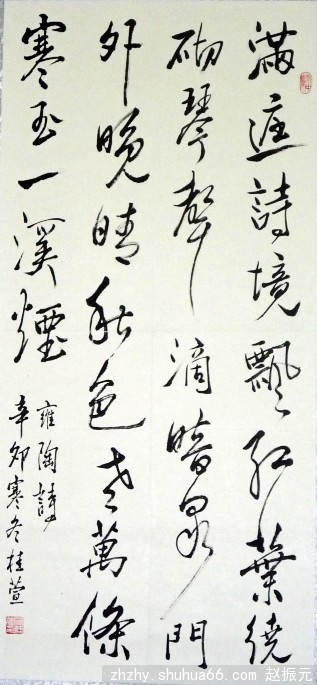 滿庭詩境飄紅葉繞
砌琴聲滴暗泉門
外晚晴秋色老萬條
寒玉一溪煙
雍陶詩
辛卯寒冬桂萱
zhzhy.shuhua66.com 赵振元